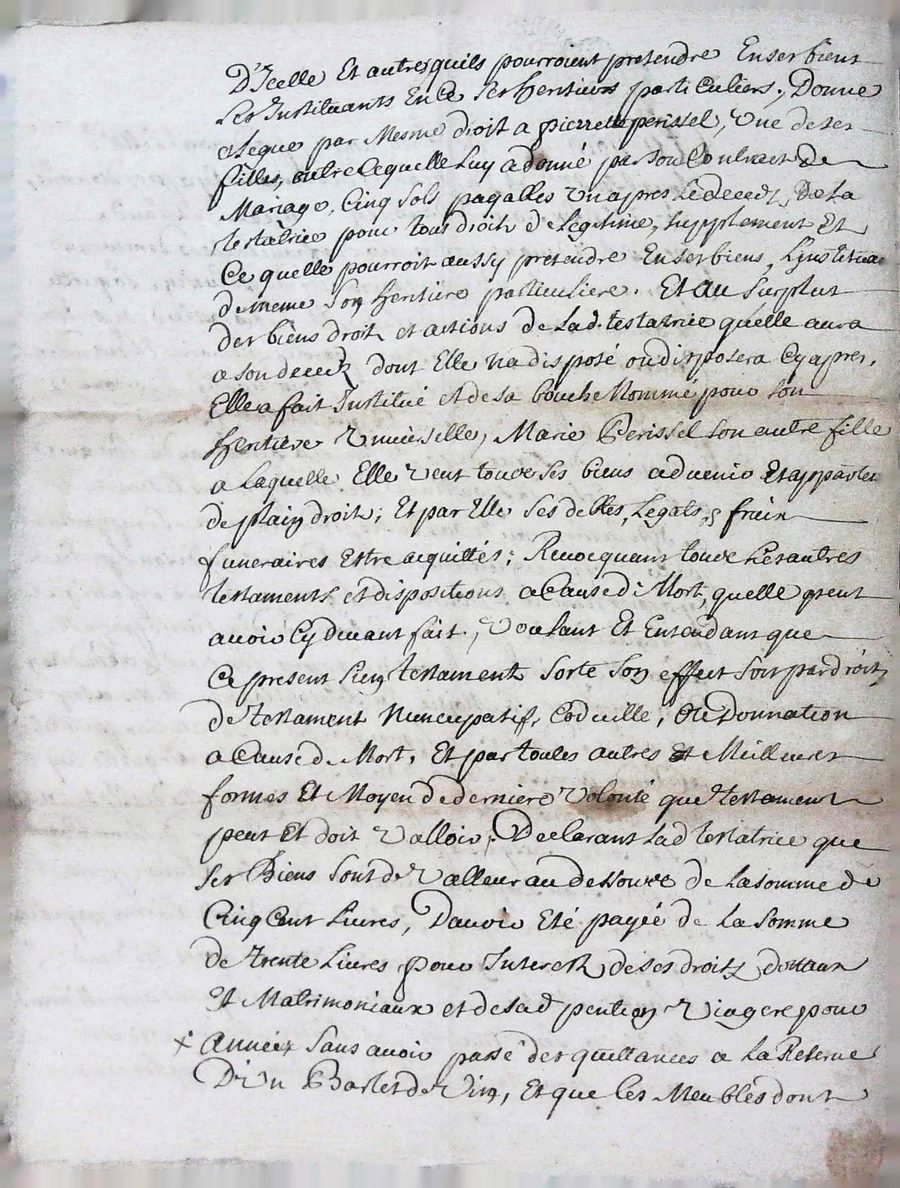 D'Icelle Et autres quils pourroient pretendre En ses biens
Les Instituants En Ce ses heritiers particuliers, Donne
et legue par Mesme droit a pierrette perissel, Une de ses
filles, outre Ce quelle Luy a donné par son Contract de
Mariage, Cinq sols pagables Un apres Le decedz, De La
testatrice pour tous droits de Legitime, supplement Et
Ce quelle pourroit aussy pretendre En ses biens, L'institua
de meme son heritiere particuliere. Et au surplus
des biens droits et actions de Lad. testatrice quelle aura
a son decedz dont Elle na disposé ou disposera Cy apres,
Elle a fait Institué et de sa bouche Nommé pour son
heritiere Universelle, Marie Perissel son autre fille
a Laquelle Elle veut tous ses biens advenir Et apparten
de plain droit; Et par Elle ses debtes, Legats, & fraix
funeraires Estre acquittés; Revocquant tous Les autres
testaments et dispositions a Cause de Mort, quelle peut
avoir Cy devant fait, Voulant Et Entendant que
Ce present sien testament sorte son effect soit par droit
de testament Nuncupatif, Codicille, Ou Donnation
a Cause de Mort, Et par toutes autres Et Meilleures
formes Et Moyen de derniere Volonté que testament
peut Et doit Valloir, Declarant Lad testatrice que
ses Biens sont de Valleur au dessous de La somme de
Cinq Cent Livres, Davoir Eté payée de La somme
de trente Livres pour Interests de ses droits dottaux
Et Matrimoniaux et de sad pention Viagere pour
x années sans avoir passé des quittances a La Reserve
D'un Barlet de Vin, Et que Les Meubles dont